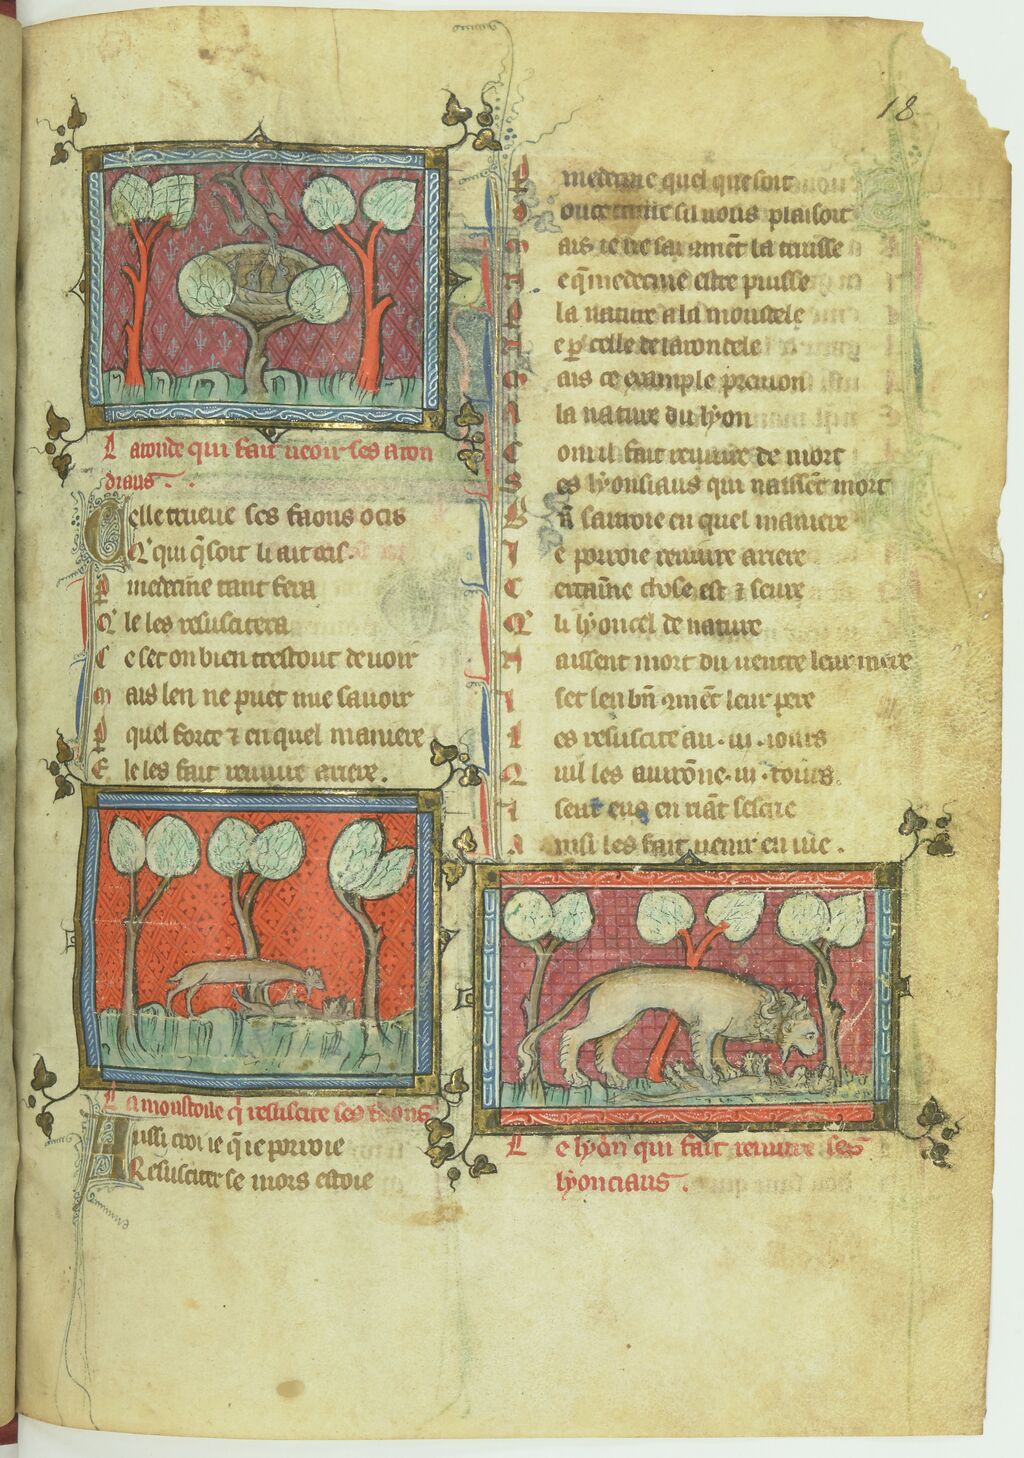 18
L aronde qui fait ueoir ses aron
draus .
Celle trueue ses faons ocis
Q' qui q̃ soit li ait cris
P medecine tant fera
Q' le les resuscitera
C e set on bien trestout de uoir
M ais len ne puet mie sauoir
P quel force ⁊ en quel maniere
E le les fait reuiure arriere .
La moustoile q̃ resuscite ses faons
Aussi croi ie q̃ ie porroie
Resusciter se mors estoie
P medecine quel que soit
D ont sil uous plaisoit
M ais ie ne sai 9ment la truisse
N e q̃ medecine estre puisse
Q la nature a la moustele
N e p celle de laroncele
M ais ce example prenon
A la nature du lyon
C om il fait reuiure de mort
S es lyonsiaus qui naissent mort
E n sauroie en quel maniere
I e porroie reuiure arriere
C ertainne chose est ⁊ seure
Q' li lyoncel de nature
N aissent mort du uentre leur mere
I set len bn̄ 9mēt leur pere
L es resuscite au .iii. iours
Q uil les auirōne .iii. tours
I sent eus en
A insi les fait uenir en uie .
L e lyon qui fait reuiure ses
lyonciaus .